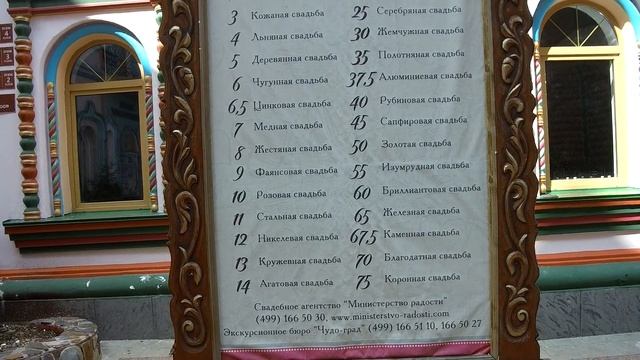 3 Кожаная свадьба
4 Льняная свадьба
5 Деревянная свадьба
6 Чугунная свадьба
6,5 Цинковая свадьба
7 Медная свадьба
8 Жестяная свадьба
9 Фаянсовая свадьба
10 Розовая свадьба
11 Стальная свадьба
12 Никелевая свадьба
13 Кружевная свадьба
14 Агатовая свадьба
25 Серебряная свадьба
30 Жемчужная свадьба
35 Полотняная свадьба
37,5 Алюминиевая свадьба
40 Рубиновая свадьба
45 Сапфировая свадьба
50 Золотая свадьба
55 Изумрудная свадьба
60 Бриллиантовая свадьба
65 Железная свадьба
67,5 Каменная свадьба
70 Благодатная свадьба
75 Коронная свадьба
Свадебное агентство "Министерство радости"
(499) 166 50 30, www.ministerstvo-radosti.com
Экскурсионное бюро "Чудо-град" (499) 166 51 10, 166 50 27